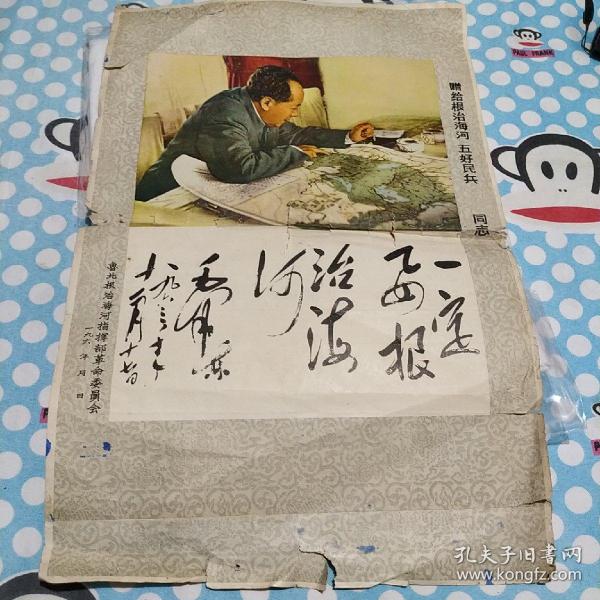 赠给根治海河五好民兵 同志
一定
要根
治海
河
毛泽东
一九六三年
十一月十七日
鲁北根治海河指挥部革命委员会
一九六 年 月 日
PAUL FRANK
孔夫子旧书网
www.kongfz.com